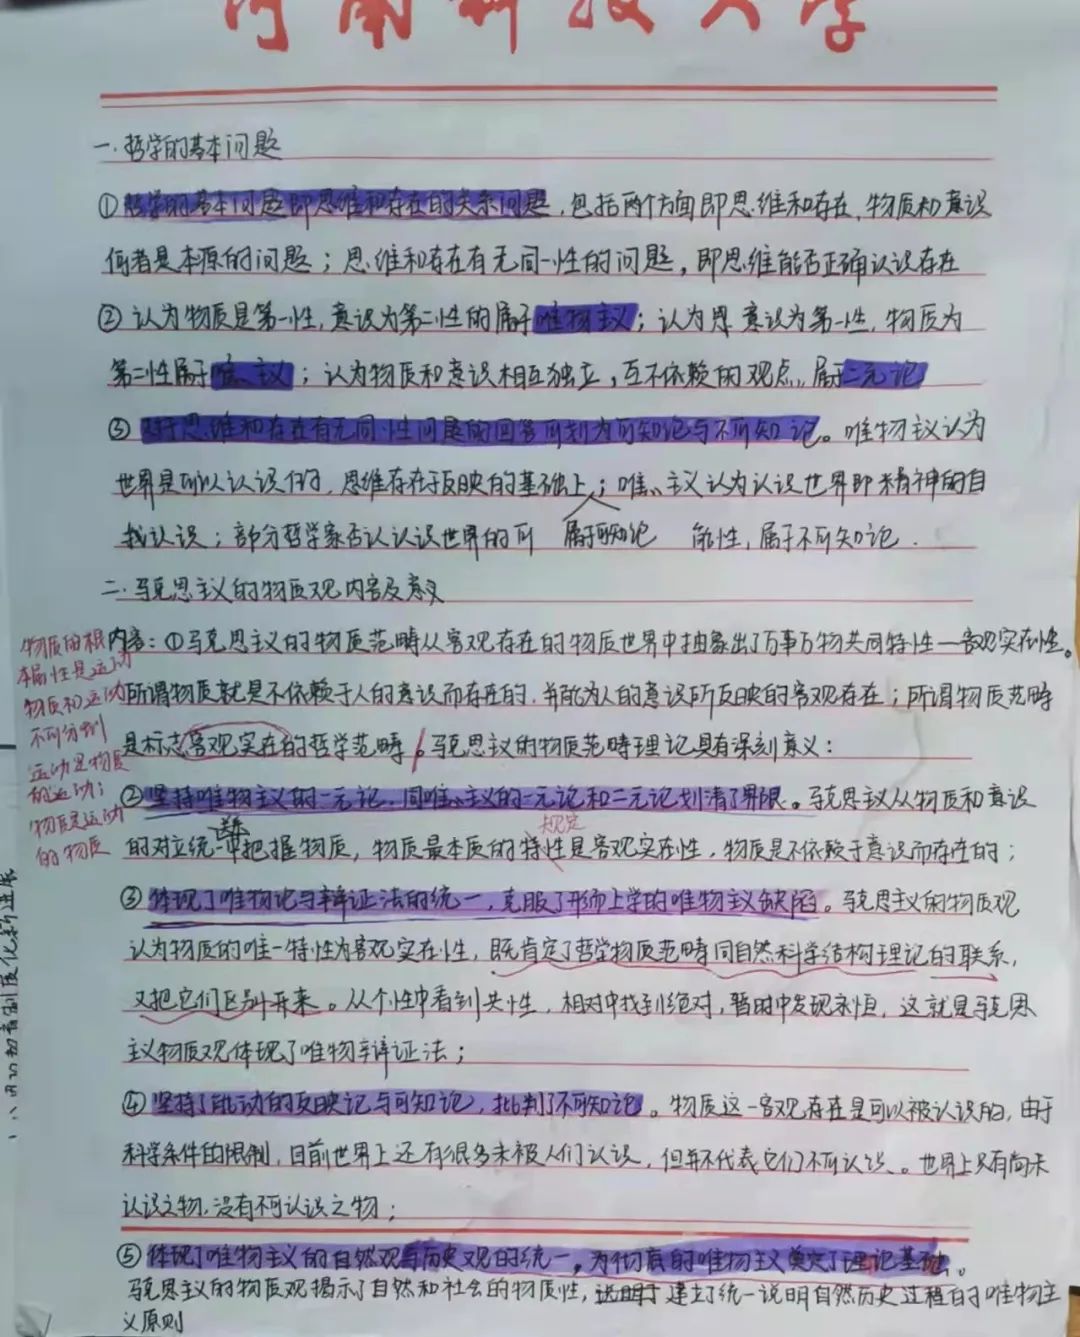 河南科技大学
一.哲学的基本问题
①哲学的基本问题即思维和存在的关系问题,包括两个方面即思维和存在,物质和意识
何者是本原的问题；思维和存在有无同一性的问题，即思维能否正确认识存在
②认为物质是第一性,意识为第二性的属于唯物主义；认为思 意识为第一性,物质为
第二性属于唯心主义；认为物质和意识相互独立,互不依赖的观点,属于二元论
③对于思维和存在有无同一性问题的回答可划为可知论与不可知论。唯物主义认为
世界是可以认识的,思维存在于反映的基础上；唯心主义认为认识世界即精神的自
我认识；部分哲学家否认认识世界的可 属于可知论 能性,属于不可知论.
二.马克思主义的物质观内容及意义
内容:①马克思主义的物质范畴从客观存在的物质世界中抽象出了万事万物共同特性一客观实在性。
所谓物质就是不依赖于人的意识而存在的,并能为人的意识所反映的客观存在；所谓物质范畴
是标志客观实在的哲学范畴。马克思主义的物质范畴理论具有深刻意义:
物质的根
本属性是运动
物质和运动
不可分割
运动是物质
的运动;
物质是运动
的物质
②坚持唯物主义的一元论,同唯心主义的一元论和二元论划清了界限。马克思主义从物质和意识
的对立统一中把握物质,物质最本质的特性是客观实在性,物质是不依赖于意识而存在的；
规定
③体现了唯物论与辩证法的统一,克服了形而上学的唯物主义缺陷。马克思主义的物质观
认为物质的唯一特性为客观实在性,既肯定了哲学物质范畴同自然科学结构理论的联系,
又把它们区别开来。从个性中看到共性,相对中找到绝对,暂时中发现永恒,这就是马克思
主义物质观体现了唯物辩证法；
④坚持了能动的反映论与可知论,批判了不可知论。物质这一客观存在是可以被认识的,由于
科学条件的限制,目前世界上还有很多未被人们认识,但并不代表它们不可认识。世界上只有尚未
认识之物,没有不可认识之物；
⑤体现了唯物主义的自然观与历史观的统一,为彻底的唯物主义奠定了理论基础。
马克思主义的物质观揭示了自然和社会的物质性,建立了统一说明自然历史过程的唯物主
义原则